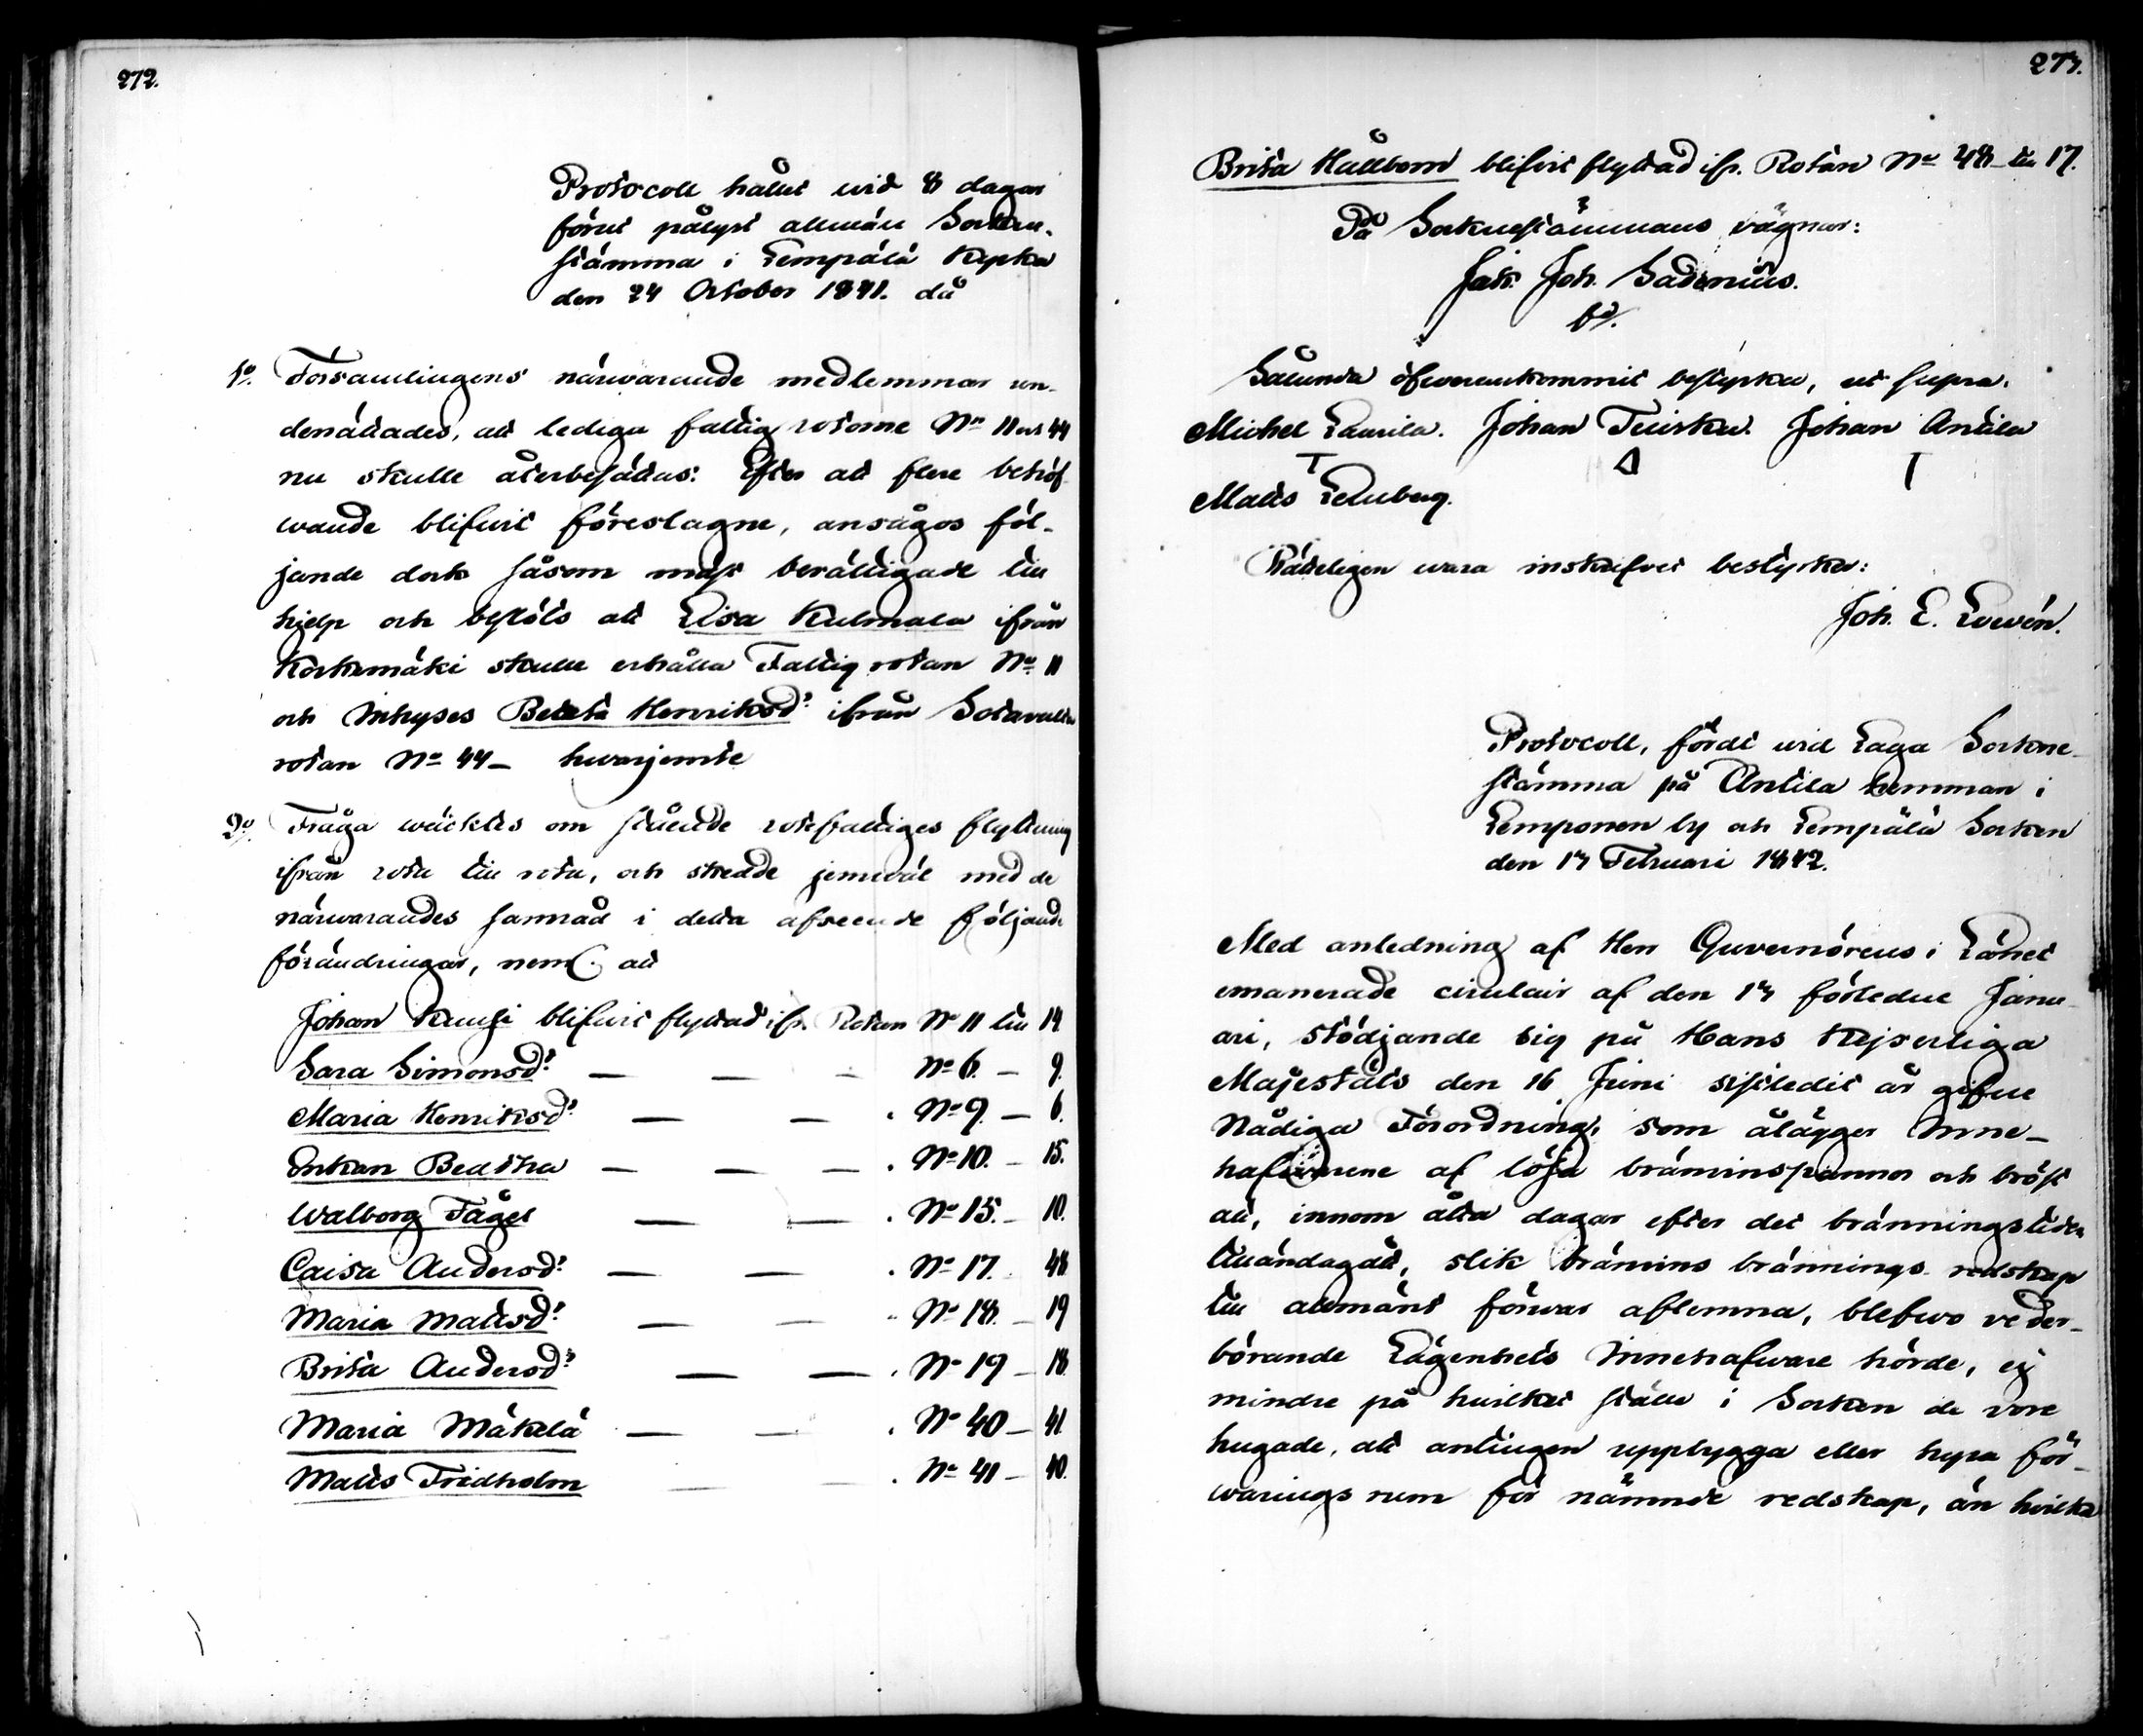 272.
Protocoll hållet wid 8 dagar
förut pålyst allmän Socken-
stämma i Lempälä Kyrka
den 24 October 1841. då
1o/. Församlingens närwarande medlemmar un-
derrättades, att lediga fattig rotorne No 11 och 44
nu skulle återbesättas: Efter att flere behöf-
wande blifwit föreslagne, ansågos föl-
jande dock såsom mäst berättigade till
hjelp och beslöts att Lisa Kulmala ifrån
Korkemäki skulle erhålla Fattig rotan No 11
och Inhyses Beata Henriksdr ifrån Sotavalta
rotan No 44 – hwarjemte
2o/. Fråga wäcktes om stående rotefattiges flyttning
ifrån rota till rota, och skedde jemwäl med de
närwarandes samråd i detta afseende följande
förändringar, neml. att
Johan Kuusi blifwit flyttad ifr. Rotan No 11 till 14
Sara Simonsdr — — – No 6. – 9.
Maria Henriksdr — — . No 9. — 6.
Enkan Beatha — — — . No 10. – 15.
Walborg Fågel — — . No 15. – 10.
Caisa Andersdr — — . No 17. 48
Maria Mattsdr — — No 18. – 19
Brita Andersdr — — . No 19 – 18.
Maria Mäkelä — — . No 40 – 41
Matts Fridholm — — . No 41 – 40.
273.
Brita Hållbom blifvit flyttad ifr. Rotan No 48 – till 17.
På Sockenstämmans vägnar:
Jak. Joh. Sadenius.
Sålunda öfwerenkommit bestyrka, ut supra.
Michel Laurila. Johan Tuiska. Johan Antila
Matts Lemberg.
Rätteligen wara inskrifvet bestyrker:
Joh. E. Lovén.
Protocoll, fördt wid Laga Sockne-
stämma på Antila hemman i
Lemponen by och Lempälä Socken
den 13 Februari 1842.
Med anledning af Herr Guvernörens i Länet
emanerade circulair af den 13 förledne Janu-
ari, stödjande sig på Hans Kejserliga
Majestäts den 16 Juni sistledit år gifne
Nådiga Förordning, som ålägger Inne-
hafvarene af lösa bränvinspannor och bröst
att, innom åtta dagar efter det bränningstiden
tilländagått, slik bränvins brännings redskap
till allmänt förwar aflemna, blefwo veder-
börande Lägenhets Innehafware hörde, ej
mindre på hwilket ställe i Socken de vore
hugade, att antingen uppbygga eller hyra för-
warings rum för nämnde redskap, än hvilka